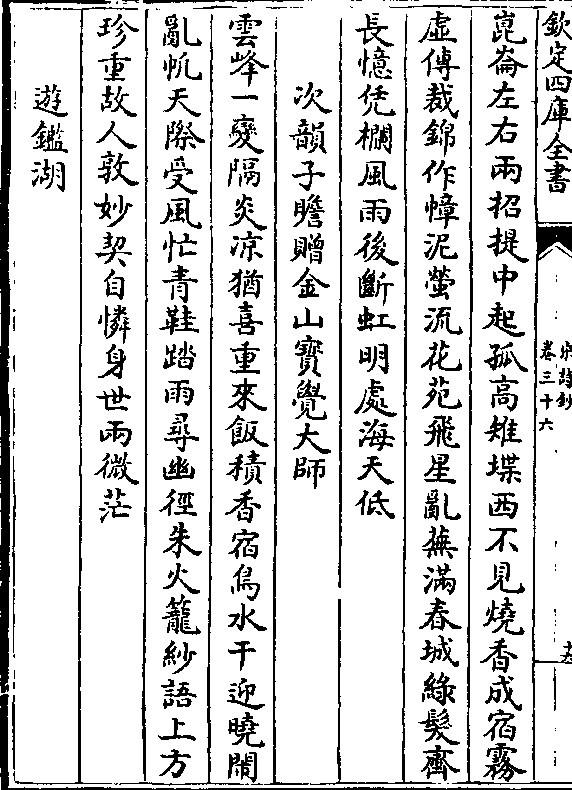 欽定四庫全書
宋詩鈔
卷三十六
崑崙左右兩招提中起孤高雉堞西不見燒香成宿霧
虛傳裁錦作幛泥螢流花苑飛星亂蕪滿春城綠髮齊
長憶凭欄風雨後斷虹明處海天低
次韻子瞻贈金山寳覺大師
雲峰一變隔炎凉猶喜重來飯積香宿鳥水干迎曉鬧
亂帆天際受風忙青鞋踏雨尋幽徑朱火籠紗語上方
珍重故人敦妙契自憐身世兩微茫
遊鑑湖